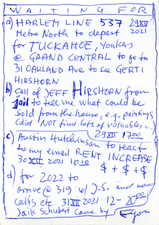 WAITING FOR
a) HARLEM LINE 537 29 XII 2021
Metro North to depart
for TUCKAHOE, Yonkers
@ GRAND CENTRAL to go to
31 OAKLAND Ave to see GERTI
HIRSHORN
b) Call of JEFF HIRSHORN from
jail to tell me what could be
sold from the house, e.g. paintings
said NOT finds lot of valuables
c) Austin Hutchinson to react 29 XII 17.00
to my email RENT INCREASE
30 XII 2021 10.10 $ + $ + $
d) for 2022 to
arrive @ 319 w/ J.S.
calls etc 31 XII 2021 12-
Jack Schubert came by